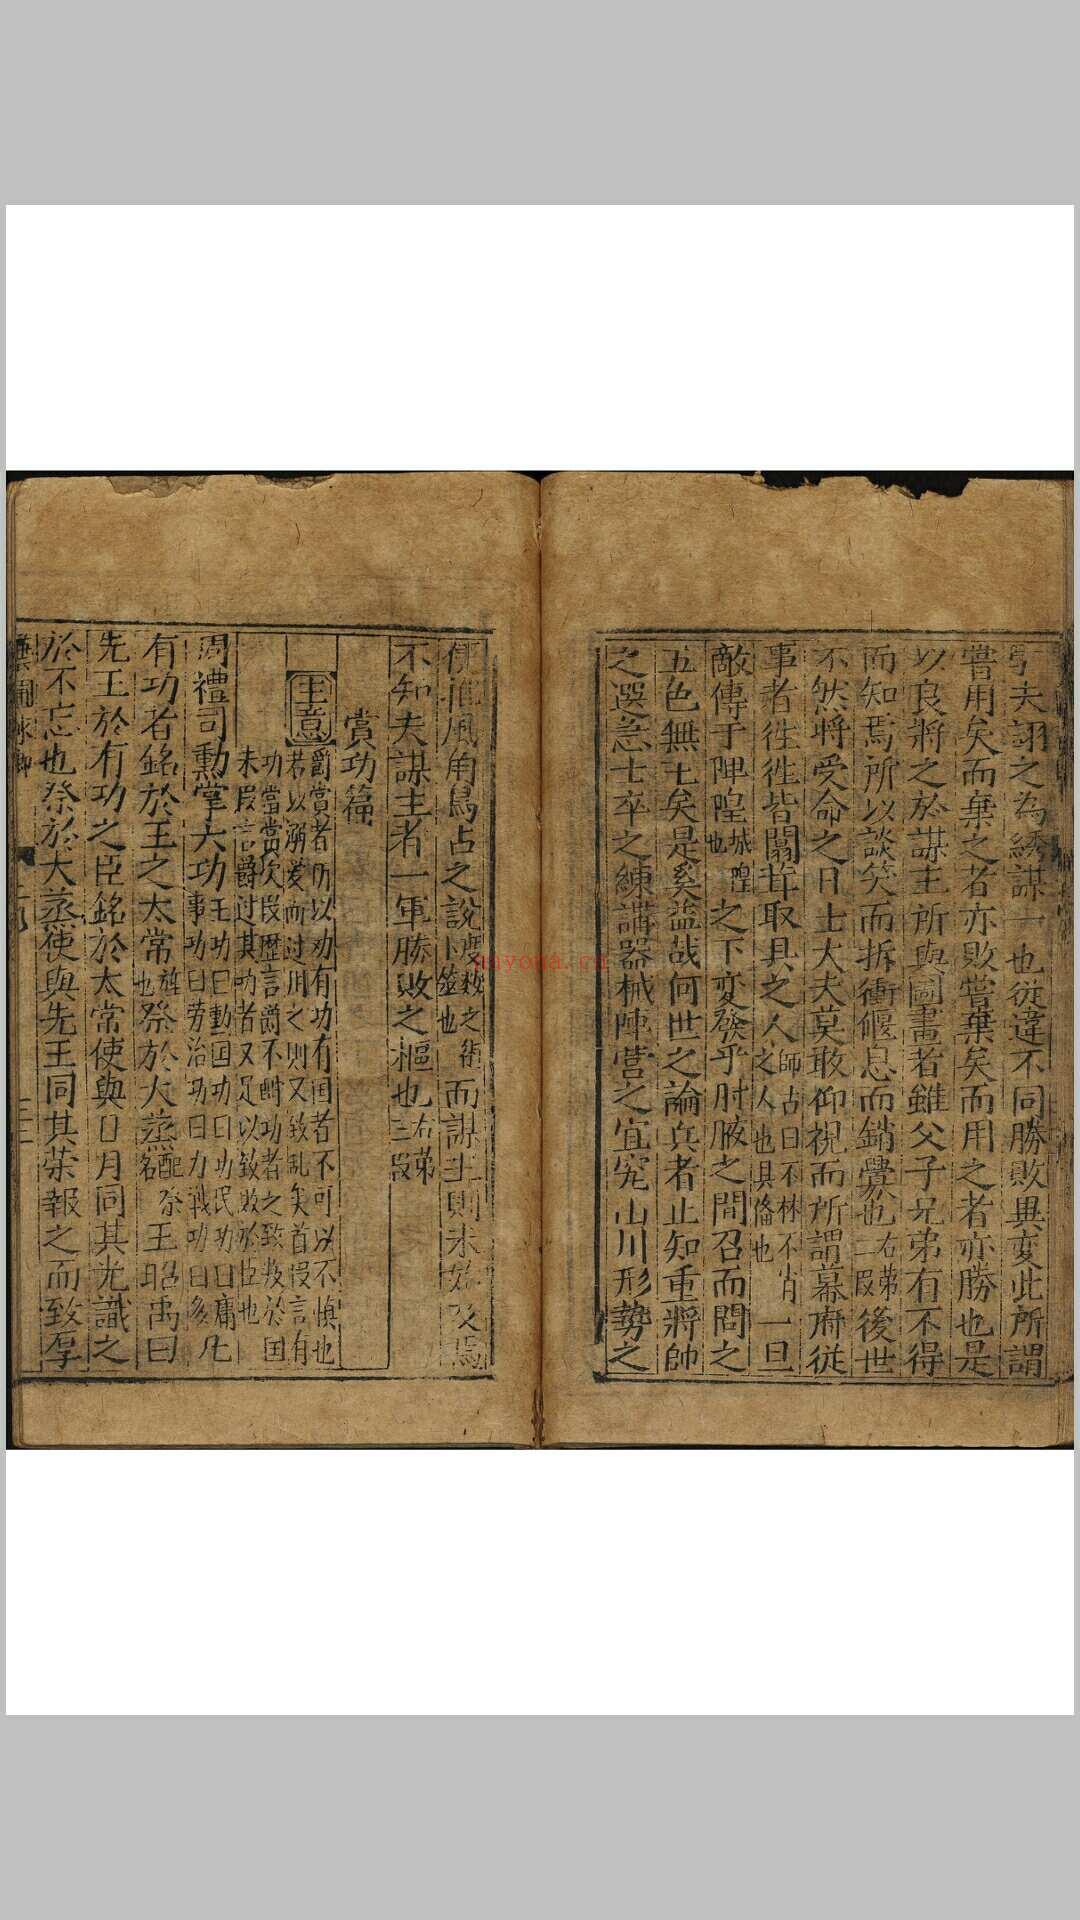 夫詡之為綉謀一也従違不同勝敗異変此所謂
嘗用矣而棄之者亦敗嘗棄矣而用之者亦勝也是
以良將之於謀主所與圖畫者雖父子兄弟有不得
而知焉所以談笑而拆衝偃息而銷釁也右第一段後世
不然將受命之日士大夫莫敢仰視而所謂幕府従
事者徃徃皆闒茸取具之人師古曰不林不肖之人也具俻也一旦
敵傳于陴隍城隍也之下変發乎肘腋之間召而問之
五色無主矣是奚益哉何世之論兵者止知重將帥
之選急士卒之練講器械陣营之宜究山川形勢之
便推風角鳥占之說卜筮也而謀主則未始及焉
不知夫謀主者一軍勝敗之樞也右第三段
賞功篇
主意爵賞者所以劝有功有国者不可以不慎也
君以溺爱而过用之則又致乱矣首段言有
功當賞次段歴言爵不酧功者之致敗於国
末段言爵过其功者又足以致敗於臣也
周禮司勳掌六功王功曰勳国功曰功民功曰庸事功曰劳治功曰力戰功曰多凡
有功者銘於王之太常旌也祭於大蒸配祭名王昭禹曰
先王於有功之臣銘於太常使與日月同其光識之
於不忘也祭於大蒸使與先王同其荣報之而致厚